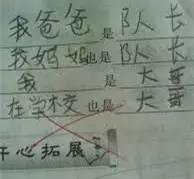 我爸爸是队长
我妈妈也是队长
我是大哥
在学校交也是大哥
开心拓展